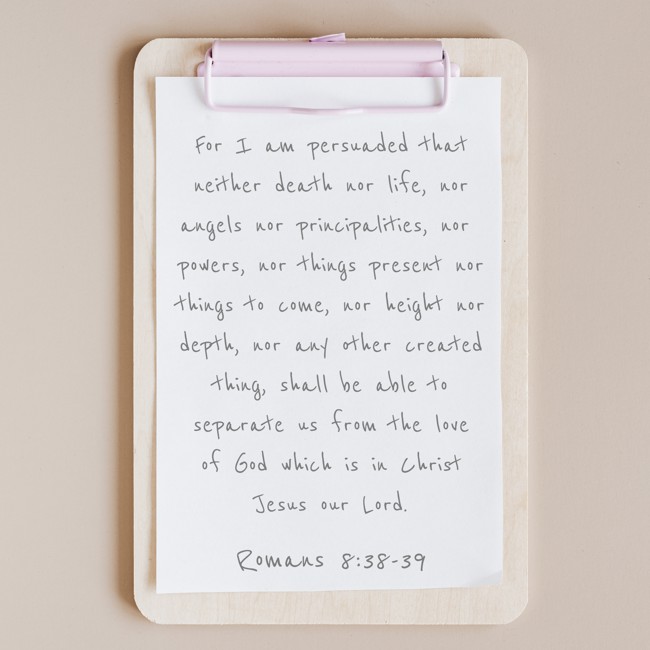 For I am persuaded that
neither death nor life, nor
angels nor principalities, nor
powers, nor things present nor
things to come, nor height nor
depth, nor any other created
thing, shall be able to
separate us from the love
of God which is in Christ
Jesus our Lord.
Romans 8:38-39